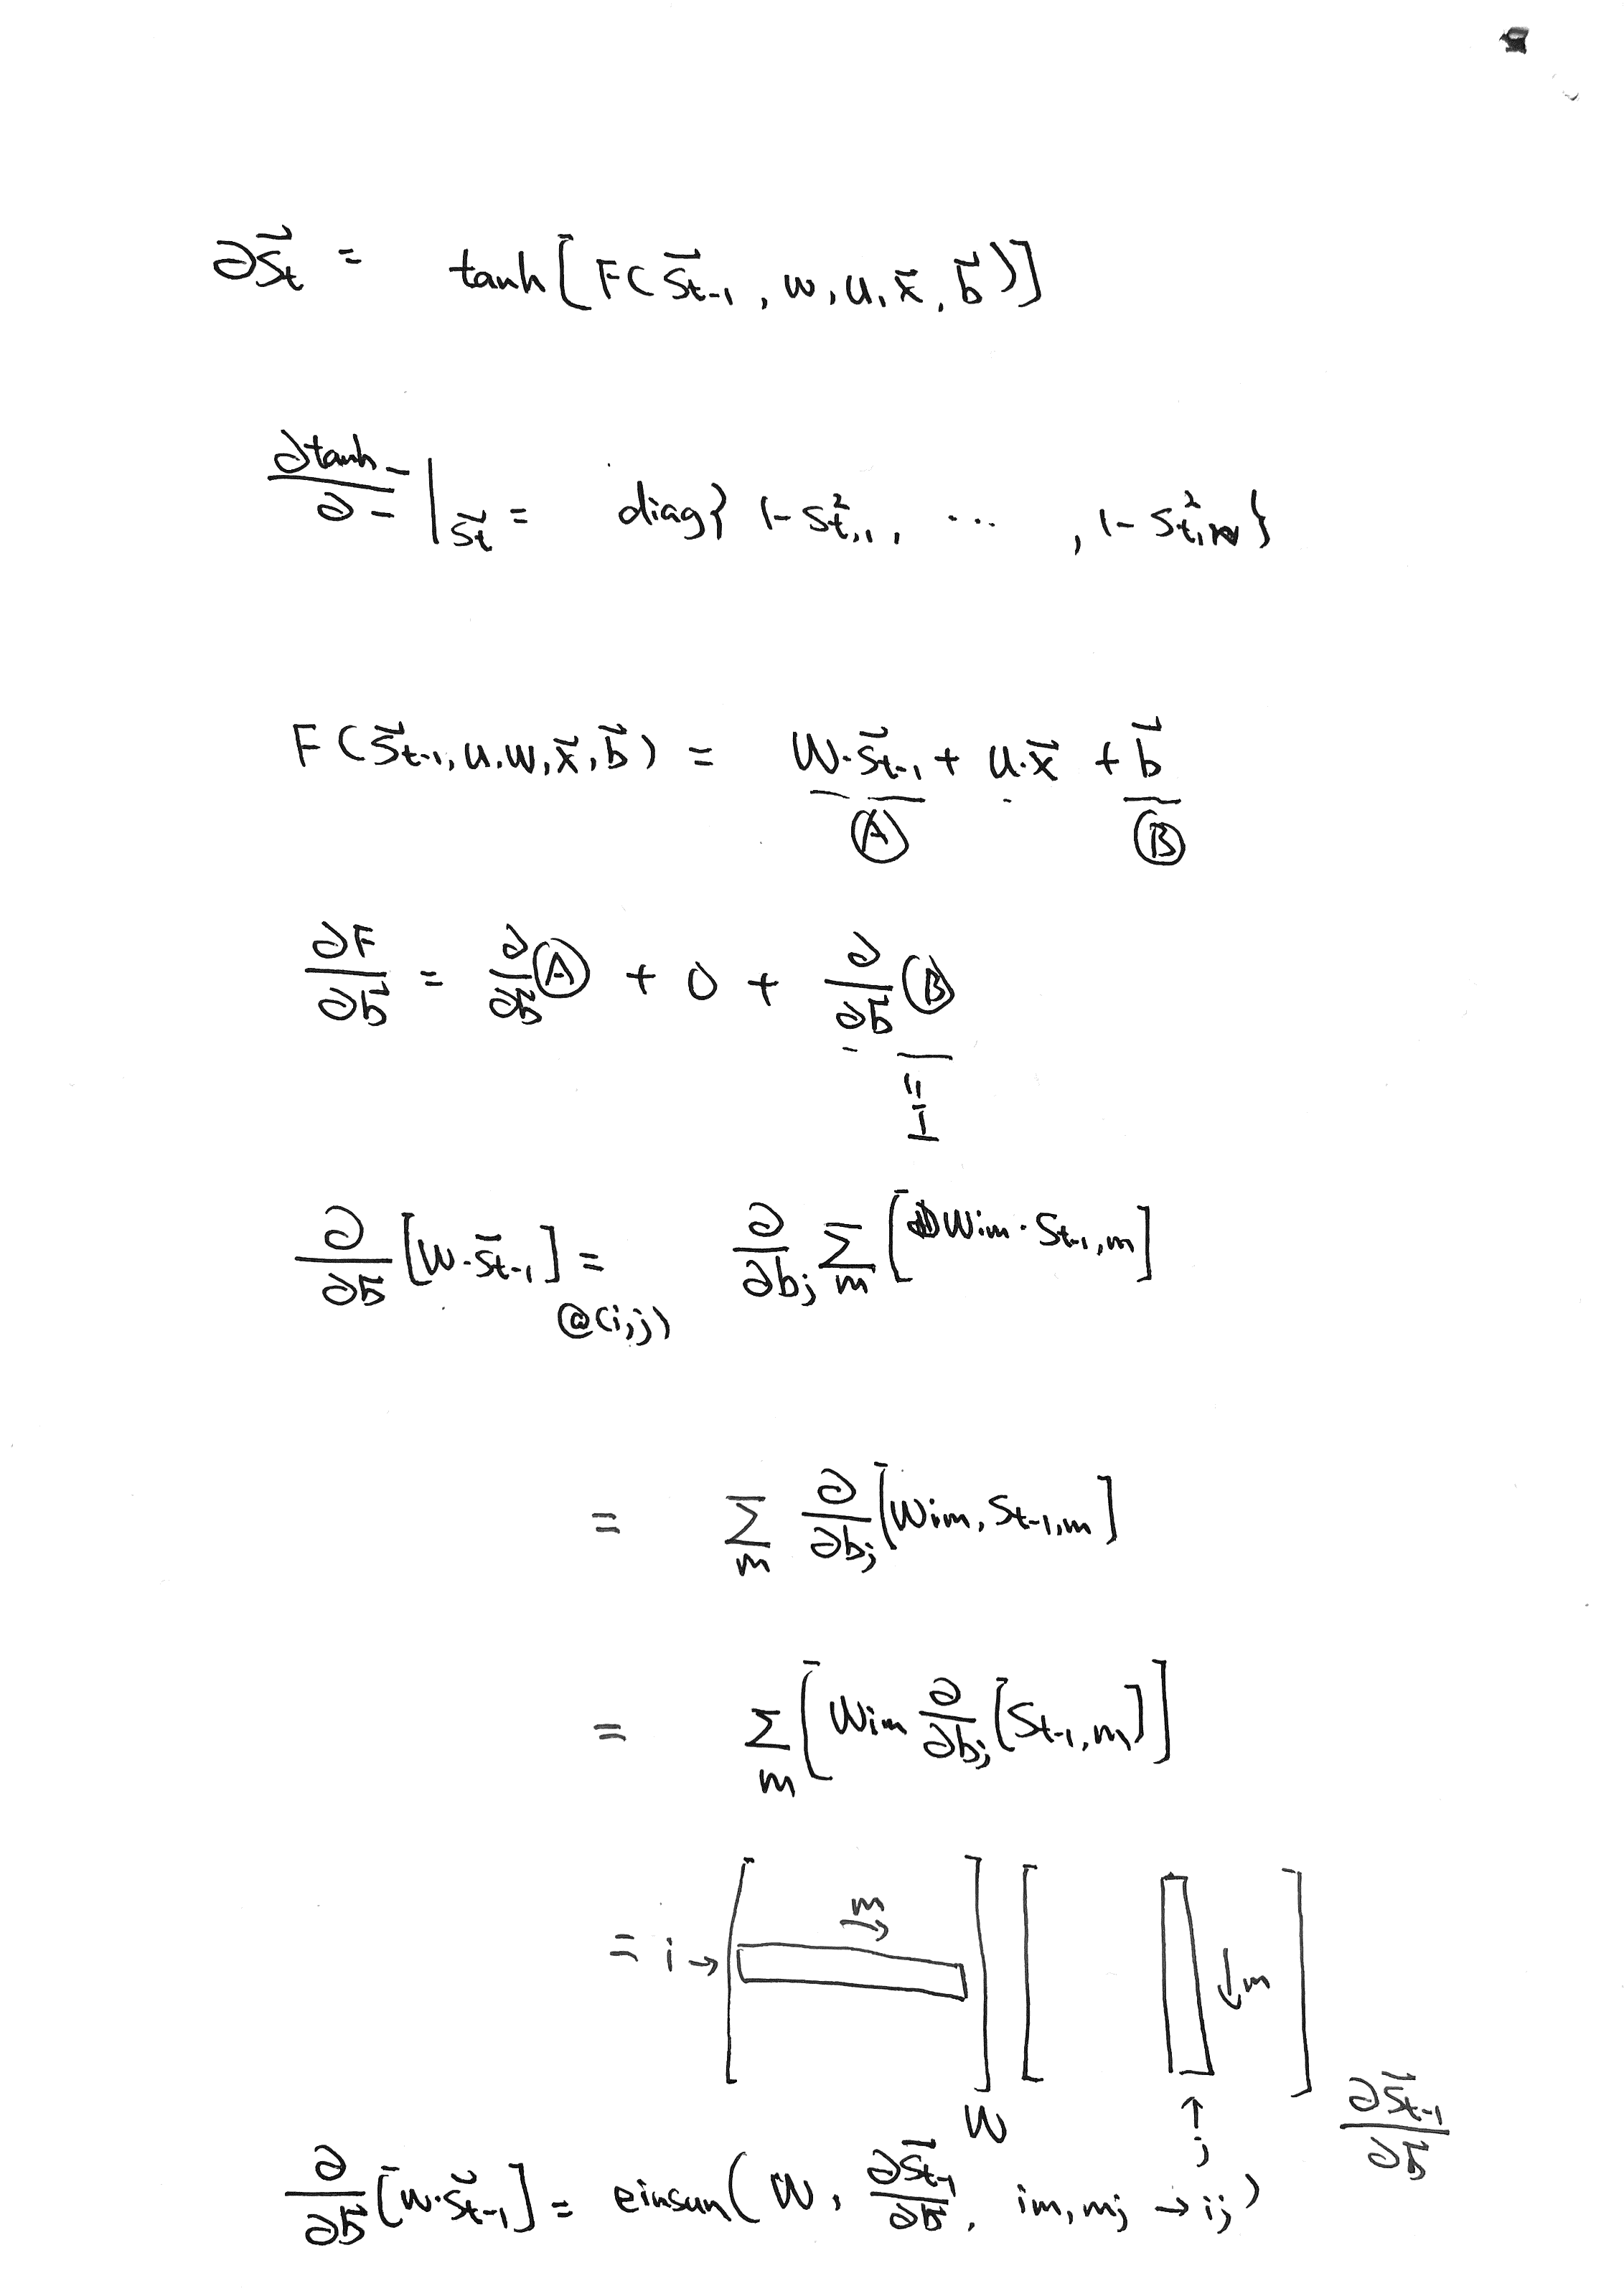 ∂s⃗t = tanh[F(s⃗t-1, w, u, x⃗, b⃗)]
∂tanh_ / ∂_ |s⃗t = diag{1-s²t,1, ⋯ , 1-s²t,n}
F(s⃗t-1, u, w, x⃗, b⃗) = W·s⃗t-1 + u·x⃗ + b⃗
Ⓐ Ⓑ
∂F/∂b⃗ = ∂/∂b⃗ Ⓐ + 0 + ∂/∂b⃗ Ⓑ
= I
∂/∂b⃗ [W·s⃗t-1] @(i,j) = ∂/∂bj Σm [Wim · St-1,m]
= Σm ∂/∂bj [Wim, St-1,m]
= Σm [Wim ∂/∂bj [St-1,m]]
= i → m → ↓m
W ↑ j ∂s⃗t-1/∂b⃗
∂/∂b⃗ [W·s⃗t-1] = einsum(W, ∂s⃗t-1/∂b⃗, im, mj → ij)